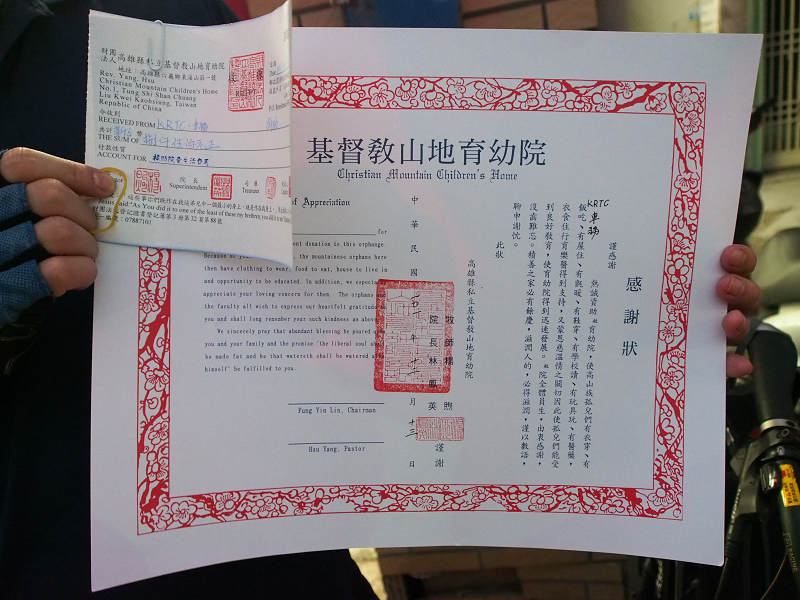 財團法人高雄縣私立基督教山地育幼院
地址:高雄縣六龜鄉東溪山莊一號
Rev. Yang, Hsu
Christian Mountain Children's Home
No.1, Tung Shi Shan Chuang
Liu Kwei Kaohsiung, Taiwan
Republic of China
今收到
RECEIVED FROM KRTC
共計
THE SUM OF
付款性質
ACCOUNT FOR
院長
Superintendent
司庫
Treasurer
Jesus said: "As You did it to one of the least of these my brethren, you did it
基督教山地育幼院
Christian Mountain Children's Home
of Appreciation
for
donation to this orphange.
the mountainese orphans here
then have clothing to wear, food to eat, house to live in
and opportunity to be educated. In addition, we
appreciate your loving concern for them. The orphans
the faculty all wish to express our heartfelt gratitude
you and shall long remember your such kindness as above
We sincerely pray that abundant blessing be poured
you and your family and the promise 'the liberal soul
be made fat and he that watereth shall be watered
himself' be fulfilled to you.
Fung Yin Lin, Chairman
Hsu Yang, Pastor
感謝狀
KRTC
謹感謝
熱誠資助
育幼院,使高山族孤兒們有衣穿、有
飯吃、有屋住、有
、有鞋穿、有學校讀、有玩具玩、有醫藥,
衣食住行育樂醫得到支持,又蒙恩慈溫情之關切因此使孤兒們能受
到良好教育,使育幼院得到迅速發展。
院全體員生,由衷感謝,
沒齒難忘。積善之家必有餘慶,滋潤人的,必得滋潤,謹以數語,
聊申謝忱。
此狀
高雄縣私立基督教山地育幼院
牧師楊煦
院長林鳳英
謹謝
中華民國
年
月
十三
日